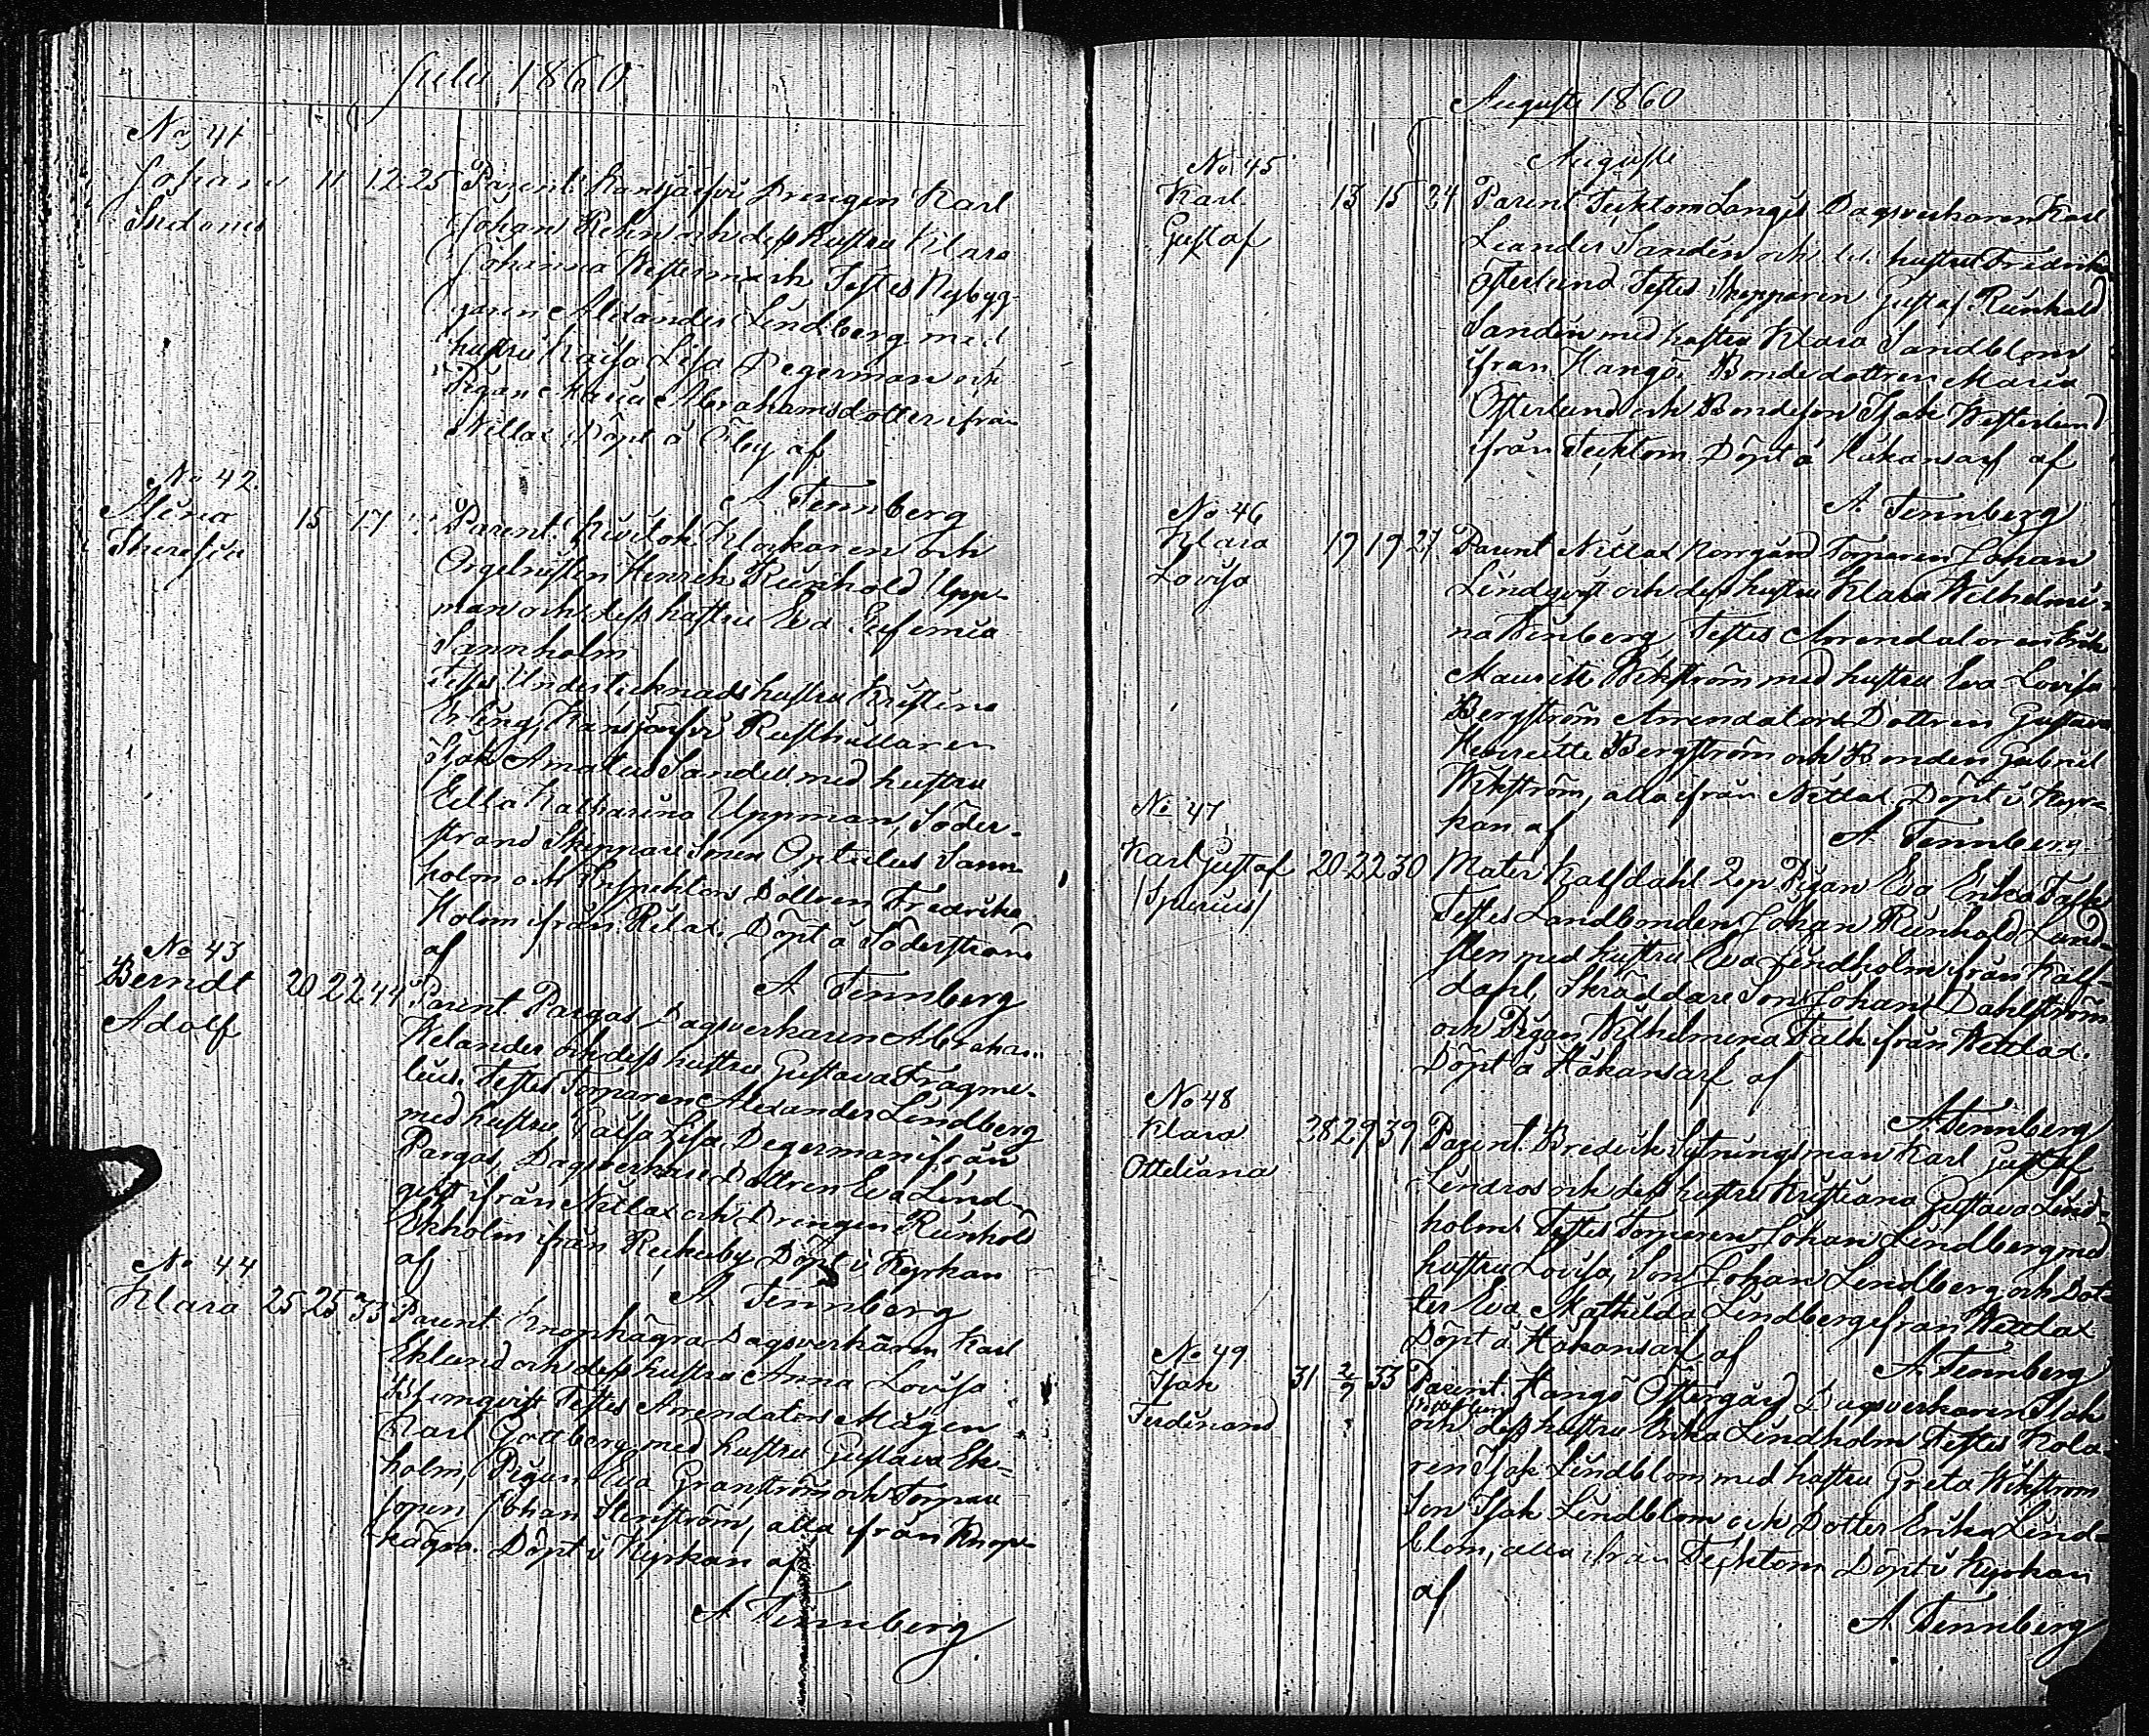 Julii 1860
No 41
Johan 11 12 25 Parent. Drengen Karl
Johan Rehn och dess hustru Klara
Johanna Westermark Testes Nybyg-
garen Alexander Lindberg med
hustru Kaisa Lisa Degerman och
Pigan Maria Abrahamsdotter ifrån
Nitlax Döpt å Öby af
A. Tennberg
No 42.
Alma 15 17 Parent. Klockaren och
Theresia Orgelnisten Henrik Reinhold Upp-
man och dess hustru Eva Eufemia
Sannholm
Testes hustru Kristina
Erling, Rusthållaren
Isak Amatus Sandell med hustru
Ulla Katharina Uppman, Söder-
strand Skeppare Sonen Sann-
holm och Inspektors Dottren Fredrika
Holm ifrån Rilax. Döpt å Söderstrand
af
A Tennberg
No 43
Berndt 20 22 44 Parent. Pargas Dagsverkaren Abraham
Adolf Welander och dess hustru Gustava Fragme-
lius. Testes Torparen Alexander Lindberg
med hustru Caisa Lisa Degerman ifrån
Pargas, Dagsverkare Dottren Eva Lind-
qvist ifrån Nitlax och Drengen Reinhold
Ekholm ifrån Döpt i Kyrkan
af
A. Tennberg
No 44
Klara 25 25 33 Parent Knopkägra Dagsverkaren Karl
Eklund och dess hustru Anna Lovisa
Blumqvist Testes Arendators Mågen
Karl Gottberg med hustru Gustava Ek-
holm, Pigan Eva Granström och Torpare
sonen Johan Stenström, alla ifrån Knop-
kägra. Döpt i Kyrkan af
A Tennberg
Augusti 1860
Augusti
No 45
Karl 13 15 24 Parent Tecktom Långis Dagsverkaren Karl
Gustaf Leander Sandén och dess hustru Fredrika
Österlund Testes Skepparen Gustaf Reinhold
Sandén med hustru Klara Sandblom
ifrån Hangö, Bondedottren Maria
Österlund och Bondeson Isak Westerlund
ifrån Tecktom Döpt å Håkansarf af
A. Tennberg
No 46
Klara 17 19 27 Parent Nitlax Norrgård Torparen Johan
Lovisa Lindqvist och dess hustru Klara Wilhelmi-
na Testes Arendatoren
Mauritz Wikström med hustru Eva Lovisa
Bergström Arrendators Dottren Gustava
Henriette Bergström och Bonden Gabriel
Wikström, alla ifrån Nitlax Döpt i Kyr-
kan af
A. Tennberg
No 47
Karl Gustaf 20 22 30 Mater Kalfdahl Pigan Eva Erika
/Spurius/ Testes Landbonden Johan Reinhold Lund-
sten med hustru Eva Lindholm ifrån Kalf-
dahl, Skräddare Son Johan Dahlström
och Pigan Wilhelmina Falk ifrån Nitlax.
Döpt å Håkansarf af
A Tennberg
No 48
Klara 28 29 39 Parent. Karl Gustaf
Otteliana Lindros och dess hustru Kristiana Gustava Lind-
holm Testes Torparen Johan Lindberg med
hustru Lovisa, Son Johan Lindberg och Dot-
ter Eva Mathilda Lindberg ifrån Nitlax
Döpt å Håkansarf af
A. Tennberg
No 49
Isak 31 2/9 33 Parent. Hangö Östergård Dagsverkaren Isak
Ferdinand och dess hustru Erika Lindholm Testes Kola-
ren Isak Lindblom med hustru Greta Wikström
Son Isak Lindblom och Dotter Erika Lind-
blom, alla ifrån Tecktom Döpt i Kyrkan
af
A. Tennberg